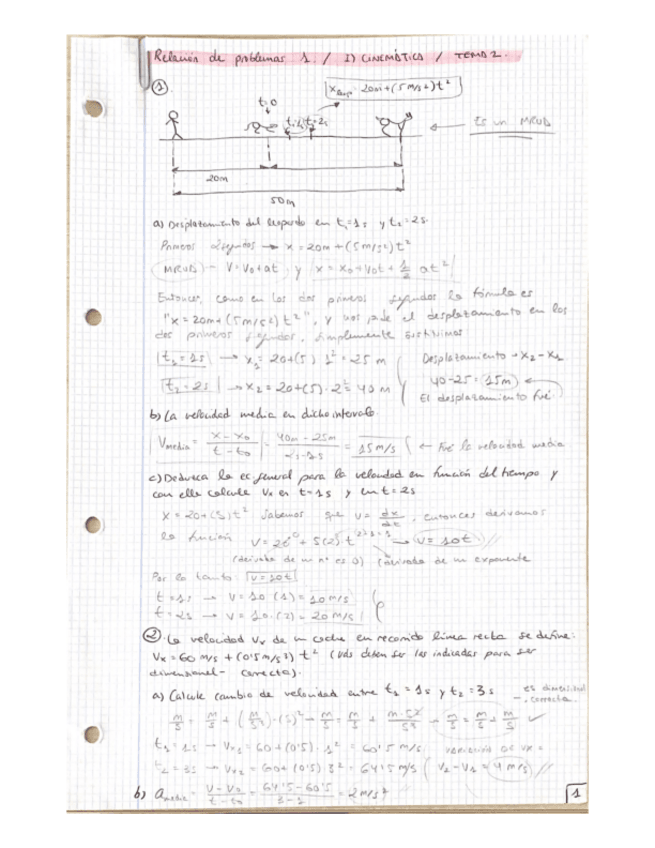 Relación de problemas 1. / I) CINEMÁTICA / TEMA 2.
①.
x = 20m + (5 m/s²) t²
t=0
t=1s t=2s
Es un MRUA
20m
50m
a) Desplazamiento del leopardo en t₁=1s y t₂=2s.
Primeros 2 segundos → x = 20m + (5m/s²) t²
MRUA → V = V₀ + at y x = x₀ + v₀t + 1/2 at²
Entonces, como en los dos primeros segundos la fórmula es
"x = 20m + (5 m/s²) t²", y nos pide el desplazamiento en los
dos primeros segundos, simplemente sustituimos
t₁ = 1s → x₁ = 20 + (5) 1² = 25 m
Desplazamiento → x₂ - x₁
t₂ = 2s → x₂ = 20 + (5) · 2² = 40 m
40 - 25 = 15m
El desplazamiento fue
b) La velocidad media en dicho intervalo
Vmedia = x - x₀ / t - t₀ = 40m - 25m / 2s - 1s = 15 m/s ← Fue la velocidad media
c) Deduzca la ec general para la velocidad en función del tiempo y
con ella calcule Vx en t=1s y en t=2s
x = 20 + (5) t² Sabemos que v = dx/dt, entonces derivamos
la función v = 20⁰ + 5(2) t²⁻¹⁼¹ → v = 10t
(derivada de un nº es 0) (derivada de un exponente
Por lo tanto: v = 10t
t = 1s → v = 10 (1) = 10 m/s
t = 2s → v = 10 · (2) = 20 m/s
②. La velocidad Vx de un coche en recorrido línea recta se define:
Vx = 60 m/s + (0'5 m/s³) t² (uds deben ser las indicadas para ser
dimensional- correcta).
a) Calcule cambio de velocidad entre t₁ = 1s y t₂ = 3s
es dimensional
correcta.
m/s = m/s + (m/s³) · (s)² → m/s = m/s + m·s²/s³ → m/s = m/s + m/s ✓
t₁ = 1s → Vx₁ = 60 + (0'5) · 1² = 60'5 m/s.
variación de Vx =
t₂ = 3s → Vx₂ = 60 + (0'5) 3² = 64'5 m/s
V₂ - V₁ = 4 m/s
b) a media = V - V₀ / t - t₀ = 64'5 - 60'5 / 3 - 1 = 2 m/s²
1